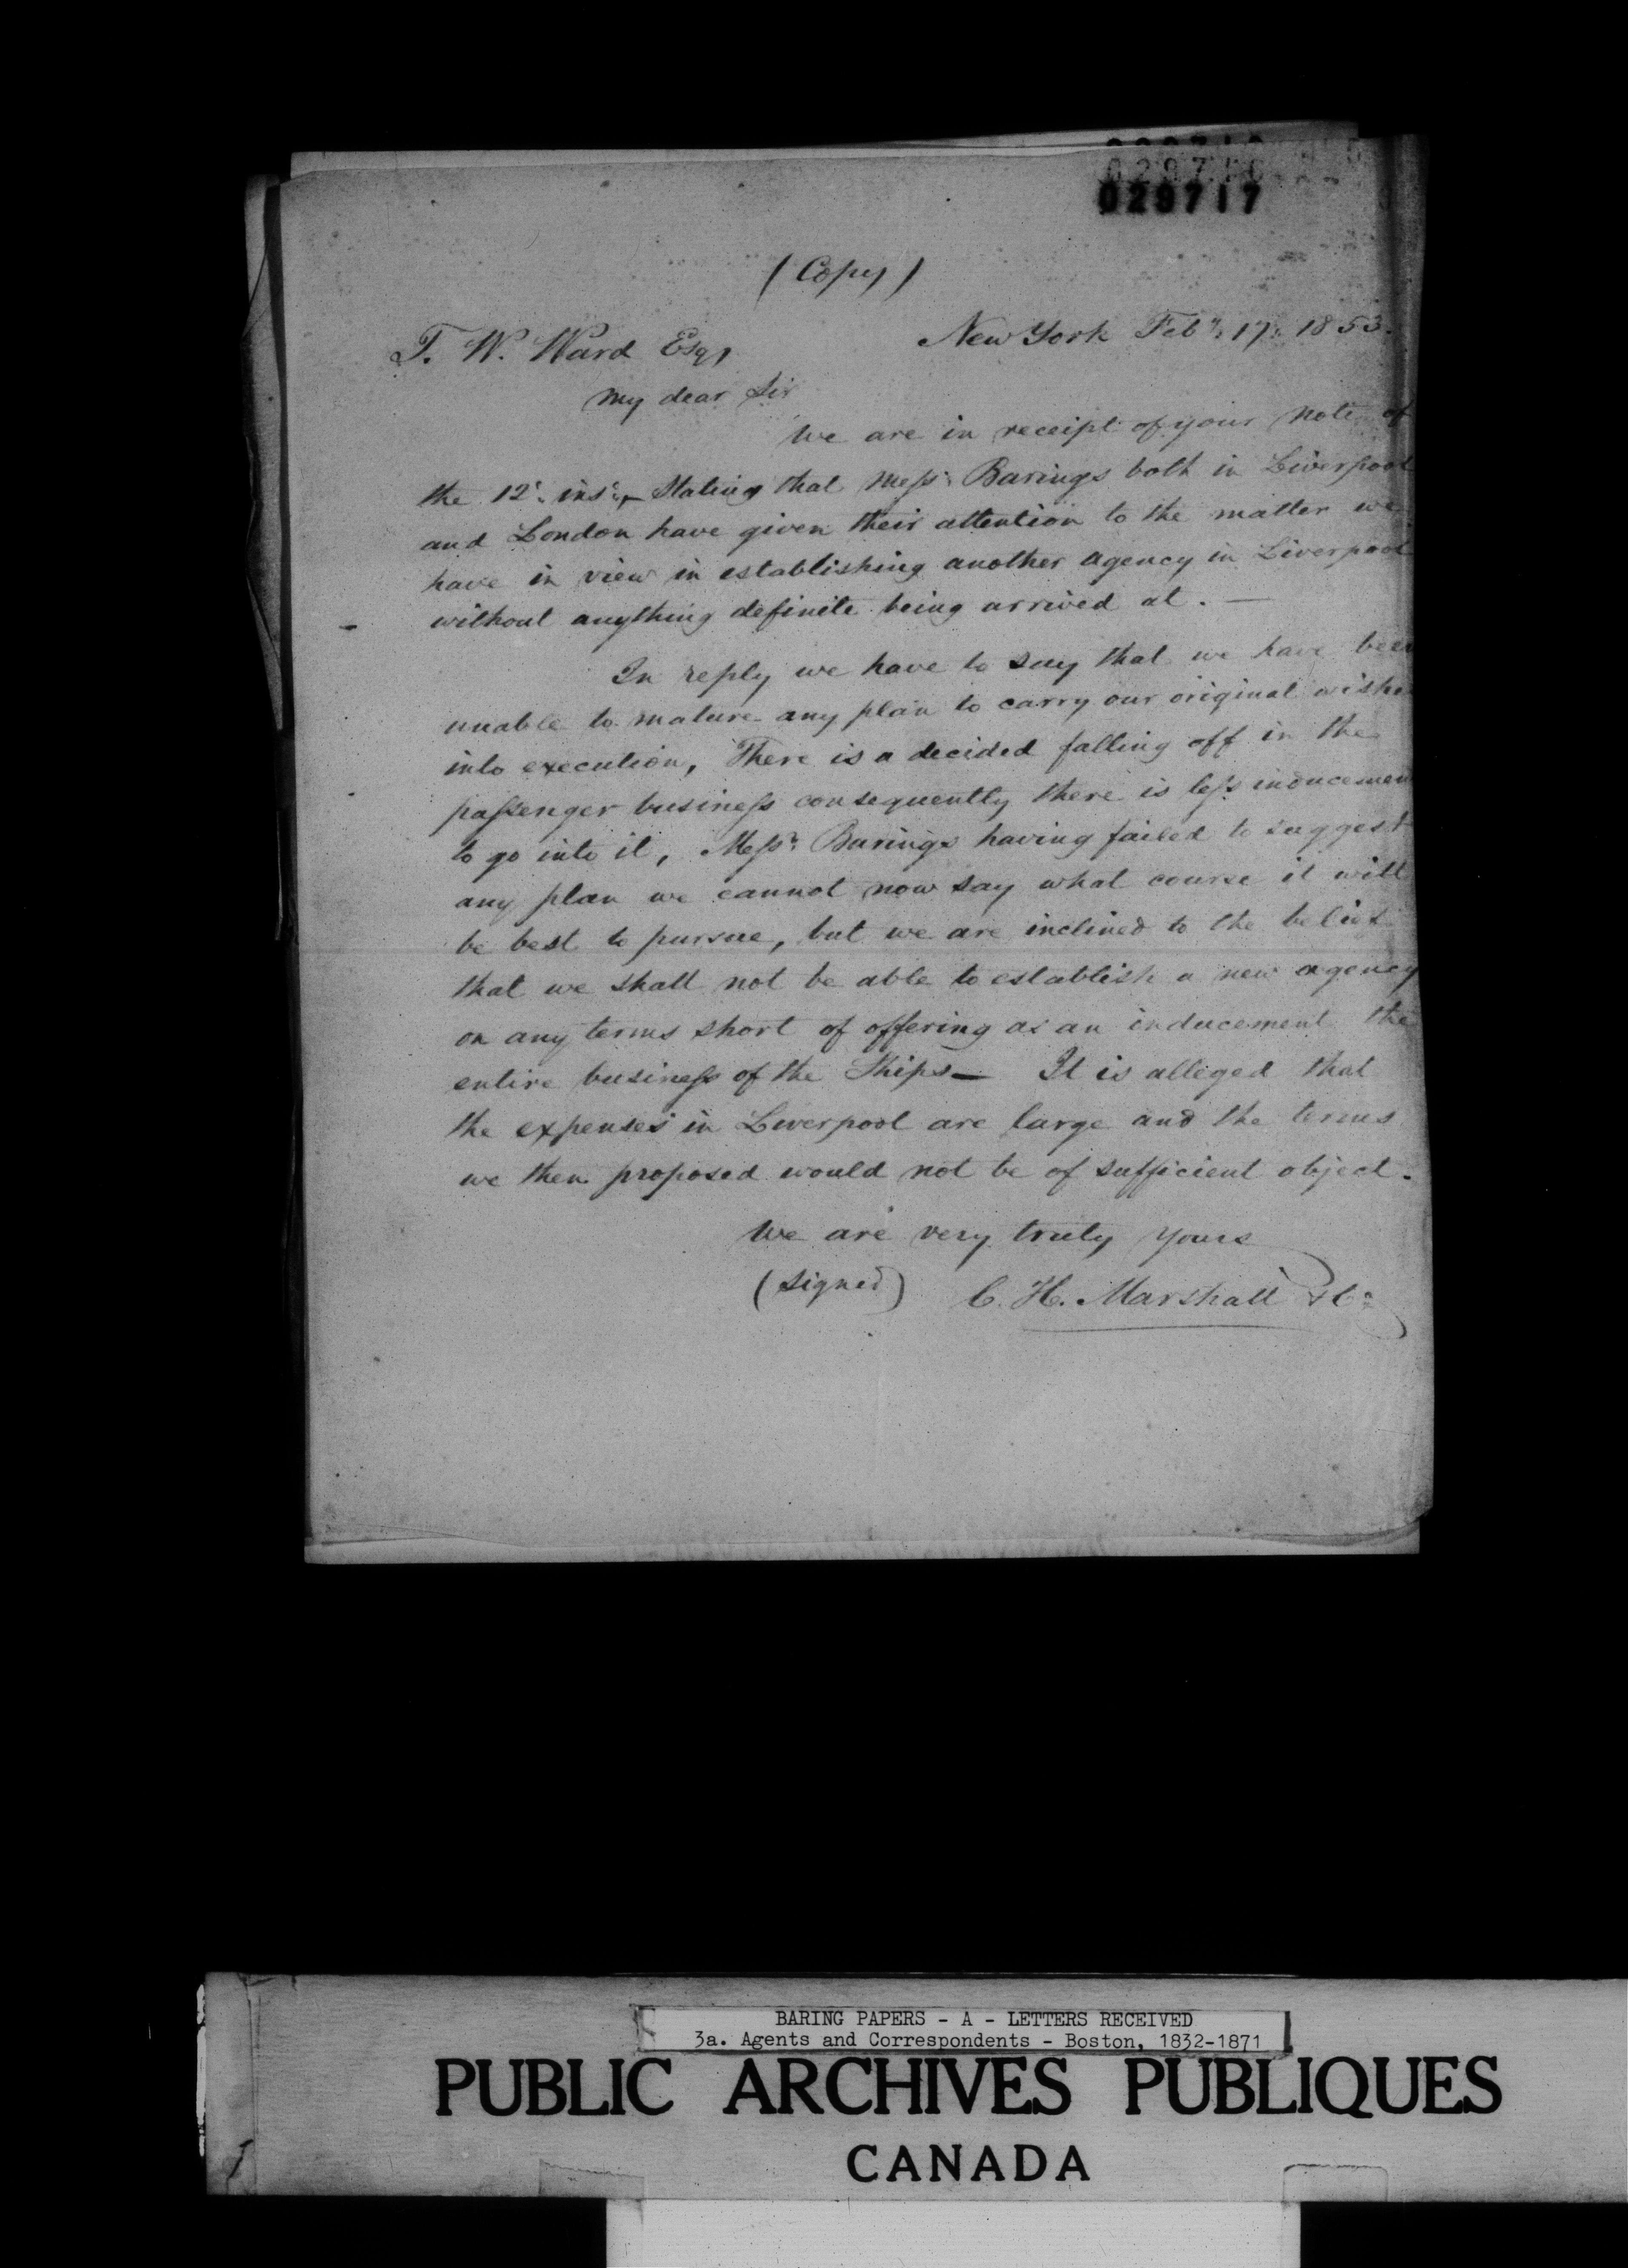 029717
(Copy)
New York Feby. 17. 1853.
T. W. Ward Esqr
My dear Sir
We are in receipt of your note of
the 12. inst. Stating that Messrs Barings both in Liverpool
and London have given their attention to the matter we
have in view in establishing another agency in Liverpool
without anything definite being arrived at. —
In reply we have to say that we have been
unable to mature any plan to carry our original wishes
into execution, There is a decided falling off in the
passenger business consequently there is less inducement
to go into it, Messrs. Barings having failed to suggest
any plan we cannot now say what course it will
be best to pursue, but we are inclined to the belief
that we shall not be able to establish a new agency
on any terms short of offering as an inducement the
entire business of the Ships — It is alleged that
the expenses in Liverpool are large and the terms
we then proposed would not be of sufficient object.
We are very truly yours
(signed) C. H. Marshall & Co.
BARING PAPERS - A - LETTERS RECEIVED
3a. Agents and Correspondents - Boston, 1832-1871
PUBLIC ARCHIVES PUBLIQUES
CANADA